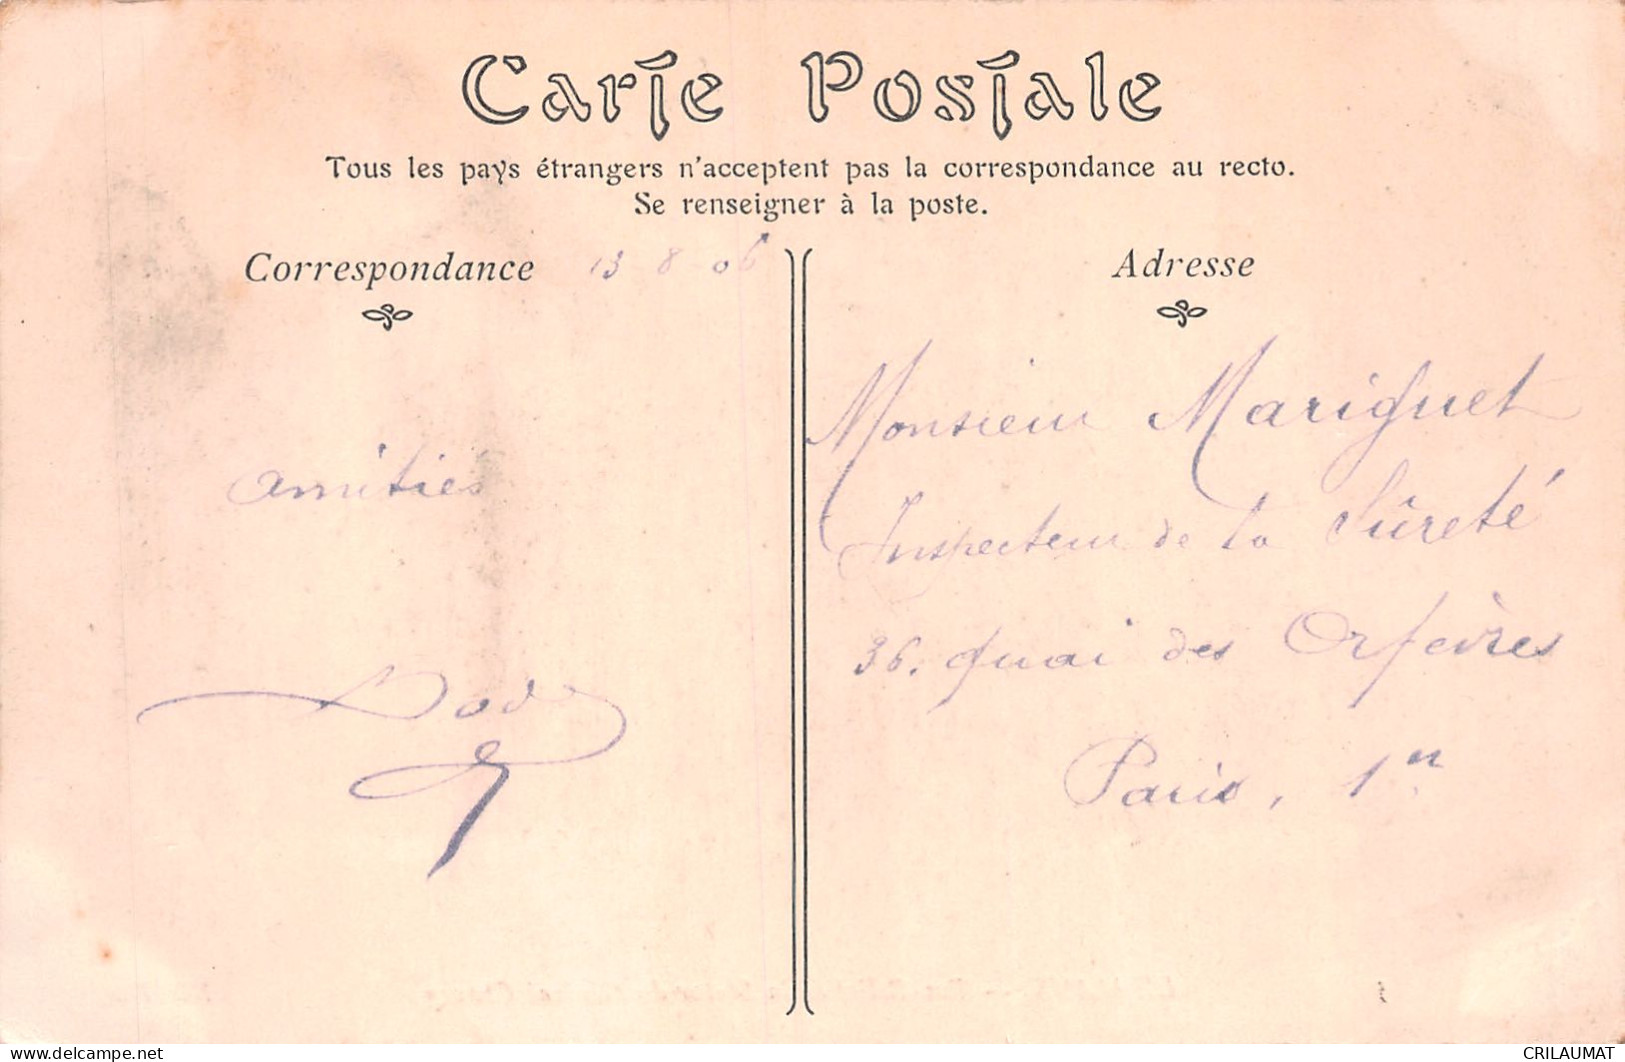 Carte Postale
Tous les pays étrangers n'acceptent pas la correspondance au recto.
Se renseigner à la poste.
Correspondance 13 8 06
Adresse
Monsieur Mariguet
Inspecteur de la Sûreté
36. quai des Orfèvres
Paris, 1er
amitiés
delcampe.net
CRILAUMAT